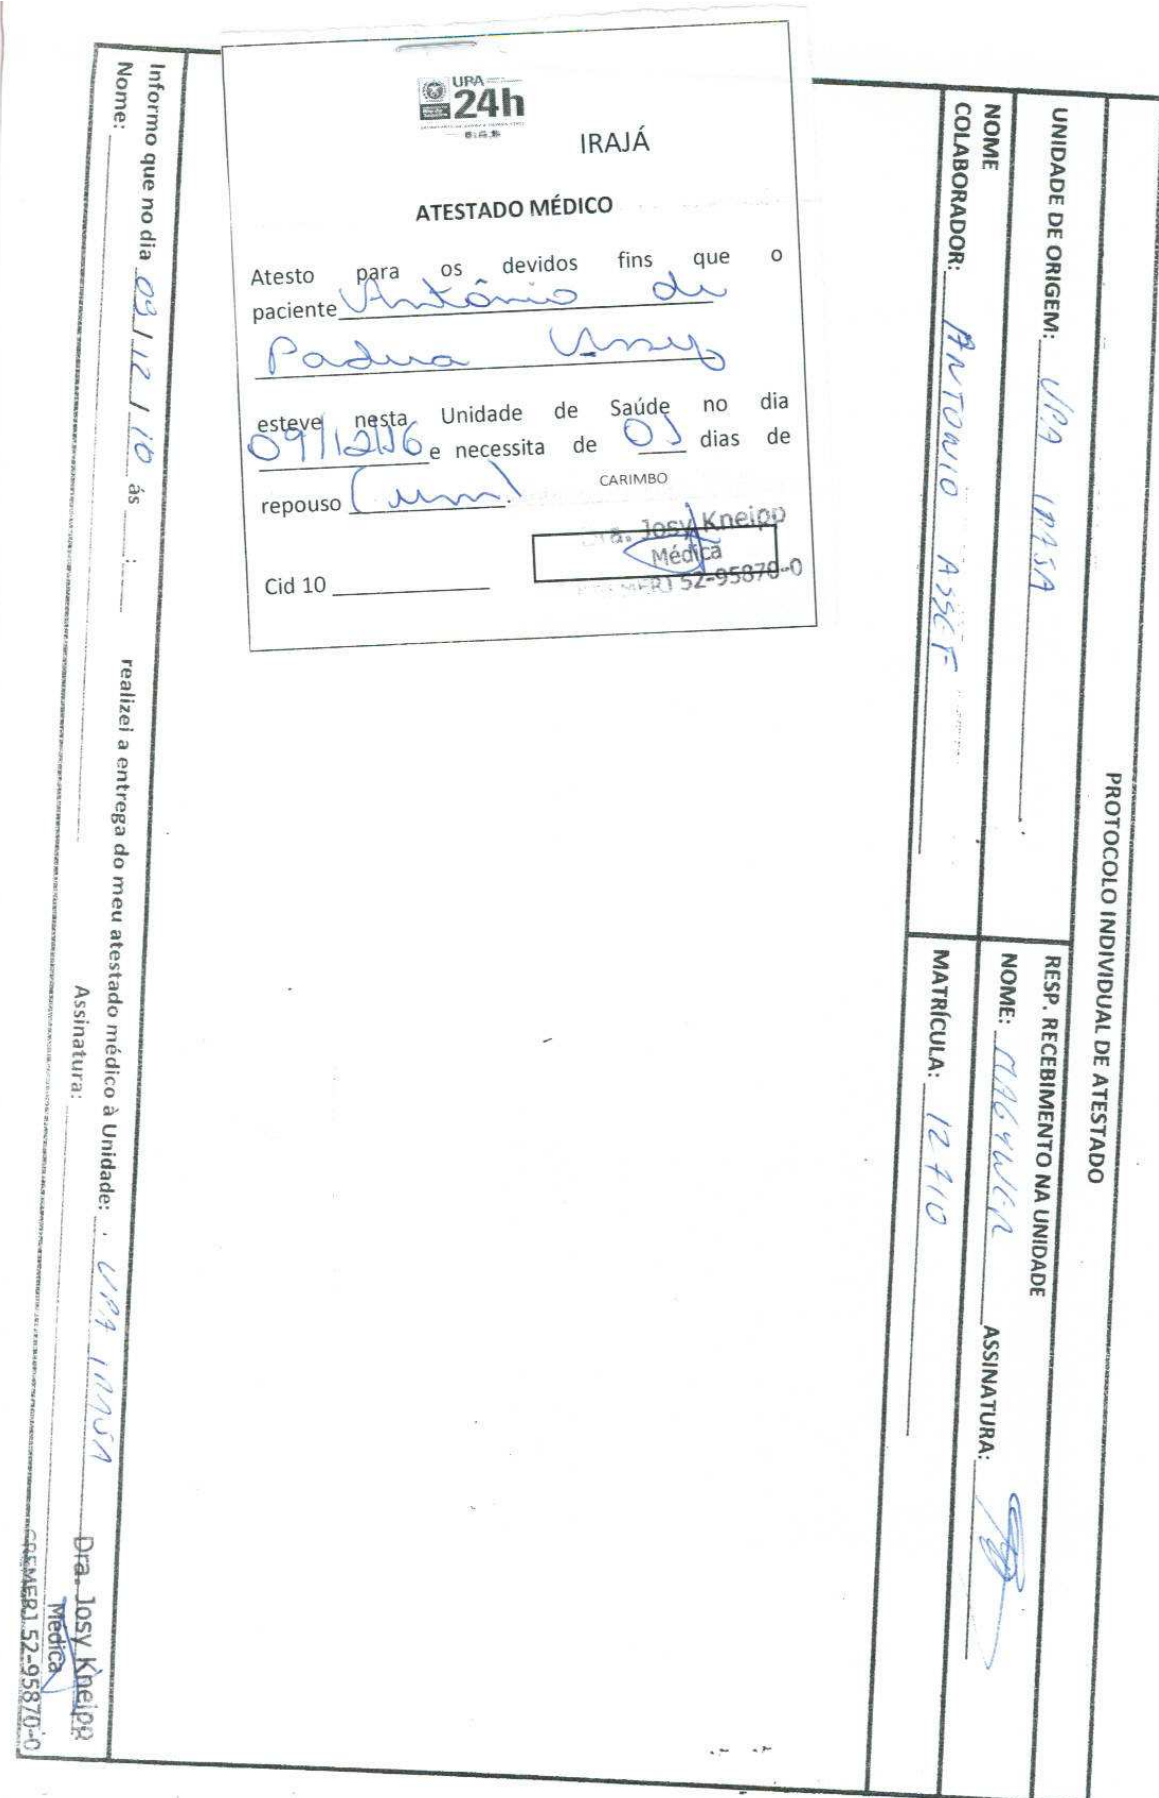 PROTOCOLO INDIVIDUAL DE ATESTADO
UNIDADE DE ORIGEM: UPA IRAJA
RESP. RECEBIMENTO NA UNIDADE
NOME: ASSINATURA:
NOME
COLABORADOR: ANTONIO ASSEF
MATRÍCULA: 12710
UPA
24h
IRAJÁ
ATESTADO MÉDICO
Atesto para os devidos fins que o
paciente Antônio de
Padua
esteve nesta Unidade de Saúde no dia
09/12/16 e necessita de 01 dias de
repouso (um)
CARIMBO
Dra. Josy Kneipp
Médica
CREMERJ 52-95870-0
Cid 10
Informo que no dia 09/12/16 ás : realizei a entrega do meu atestado médico à Unidade: UPA IRAJA
Nome: Assinatura:
Dra. Josy Kneipp
Médica
CREMERJ 52-95870-0